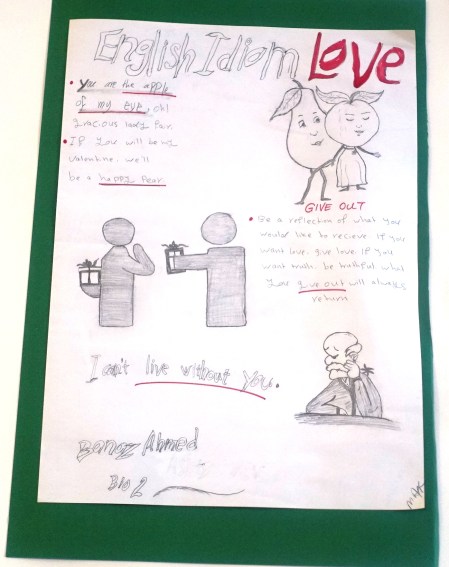 English Idiom LOVE
• You are the apple
of my eye, oh!
gracious lovely fair.
• If you will be my
valentine. we'll
be a happy Pear.
GIVE OUT
• Be a reflection of what you
would like to recieve if you
want love. give love if you
want truth. be truthful what
your give out will always
return
I can't live without you.
Ahmed
Bio 2